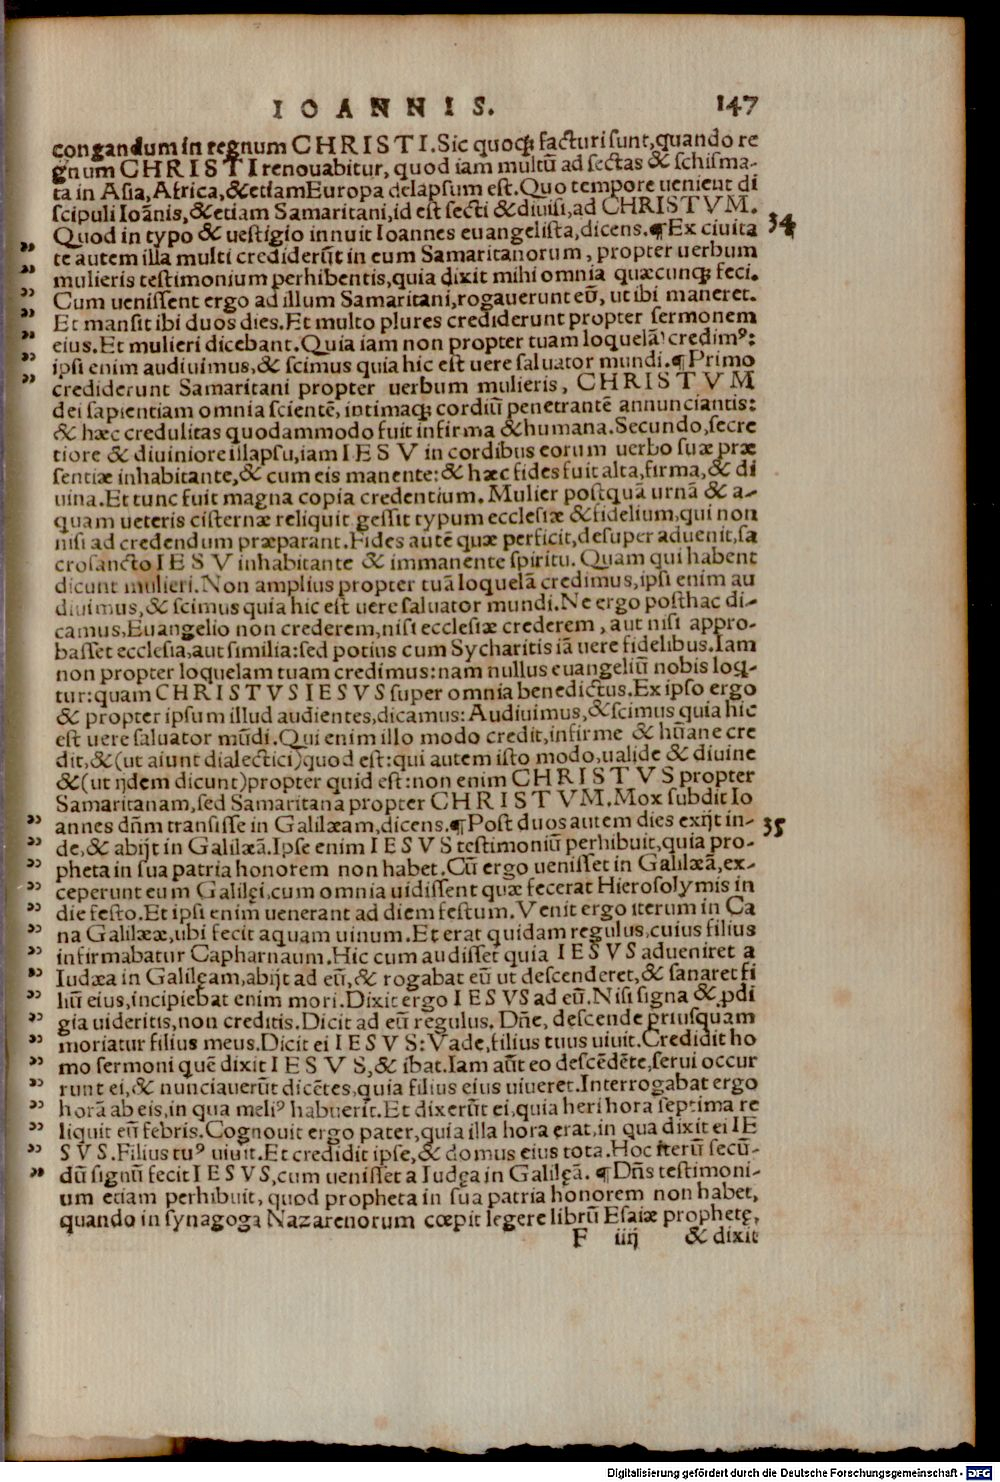 IOANNIS. 147
congandum in regnum CHRISTI. Sic quoqꝫ facturi sunt, quando re
gnum CHRISTI renouabitur, quod iam multũ ad sectas & schisma-
ta in Asia, Africa, & etiam Europa delapsum est. Quo tempore uenient di
scipuli Ioãnis, & etiam Samaritani, id est secti & diuisi, ad CHRISTVM.
Quod in typo & uestigio innuit Ioannes euangelista, dicens. ¶ Ex ciuita 34
te autem illa multi crediderũt in eum Samaritanorum, propter uerbum
mulieris testimonium perhibentis, quia dixit mihi omnia quæcunqꝫ feci.
Cum uenissent ergo ad illum Samaritani, rogauerunt eũ, ut ibi maneret.
Et mansit ibi duos dies. Et multo plures crediderunt propter sermonem
eius. Et mulieri dicebant. Quia iam non propter tuam loquelã credimꝰ:
ipsi enim audiuimus, & scimus quia hic est uere saluator mundi. ¶ Primo
crediderunt Samaritani propter uerbum mulieris, CHRISTVM
dei sapientiam omnia scientẽ, intimaqꝫ cordiũ penetrantẽ annunciantis:
& hæc credulitas quodammodo fuit infirma & humana. Secundo, secre
tiore & diuiniore illapsu, iam IESV in cordibus eorum uerbo suæ præ
sentiæ inhabitante, & cum eis manente: & hæc fides fuit alta, firma, & di
uina. Et tunc fuit magna copia credentium. Mulier postquã urnã & a-
quam ueteris cisternæ reliquit gessit typum ecclesiæ & fidelium, qui non
nisi ad credendum præparant. Fides autẽ quæ perficit, desuper aduenit, sa
crosancto IESV inhabitante & immanente spiritu. Quam qui habent
dicunt mulieri. Non amplius propter tuã loquelã credimus, ipsi enim au
diuimus, & scimus quia hic est uere saluator mundi. Ne ergo posthac di-
camus, Euangelio non crederem, nisi ecclesiæ crederem, aut nisi appro-
basset ecclesia, aut similia: sed potius cum Sycharitis iã uere fidelibus. Iam
non propter loquelam tuam credimus: nam nullus euangeliũ nobis loq̃-
tur: quam CHRISTVS IESVS super omnia benedictus. Ex ipso ergo
& propter ipsum illud audientes, dicamus: Audiuimus, & scimus quia hic
est uere saluator mũdi. Qui enim illo modo credit, infirme & hũane cre
dit, & (ut aiunt dialectici) quod est: qui autem isto modo, ualide & diuine
& (ut ijdem dicunt) propter quid est: non enim CHRISTVS propter
Samaritanam, sed Samaritana propter CHRISTVM. Mox subdit Io
annes dñm transisse in Galilæam, dicens. ¶ Post duos autem dies exijt in- 35
de, & abijt in Galilæã. Ipse enim IESVS testimoniũ perhibuit, quia pro-
pheta in sua patria honorem non habet. Cũ ergo uenisset in Galilæã, ex-
ceperunt eum Galilęi, cum omnia uidissent quæ fecerat Hierosolymis in
die festo. Et ipsi enim uenerant ad diem festum. Venit ergo iterum in Ca
na Galilææ, ubi fecit aquam uinum. Et erat quidam regulus, cuius filius
infirmabatur Capharnaum. Hic cum audisset quia IESVS adueniret a
Iudæa in Galilęam, abijt ad eũ, & rogabat eũ ut descenderet, & sanaret fi
liũ eius, incipiebat enim mori. Dixit ergo IESVS ad eũ. Nisi signa & ꝓdi
gia uideritis, non creditis. Dicit ad eũ regulus. Dñe, descende priusquam
moriatur filius meus. Dicit ei IESVS: Vade, filius tuus uiuit. Credidit ho
mo sermoni quẽ dixit IESVS, & ibat. Iam aũt eo descẽdẽte, serui occur
runt ei, & nunciauerũt dicẽtes, quia filius eius uiueret. Interrogabat ergo
horã ab eis, in qua meliꝰ habuerit. Et dixerũt ei, quia heri hora septima re
liquit eũ febris. Cognouit ergo pater, quia illa hora erat, in qua dixit ei IE
SVS. Filius tuꝰ uiuit. Et credidit ipse, & domus eius tota. Hoc iterũ secũ-
dũ signũ fecit IESVS, cum uenisset a Iudęa in Galilęã. ¶ Dñs testimoni-
um etiam perhibuit, quod propheta in sua patria honorem non habet,
quando in synagoga Nazarenorum cœpit legere librũ Esaiæ prophetę,
F iiij & dixit
Digitalisierung gefördert durch die Deutsche Forschungsgemeinschaft - DFG